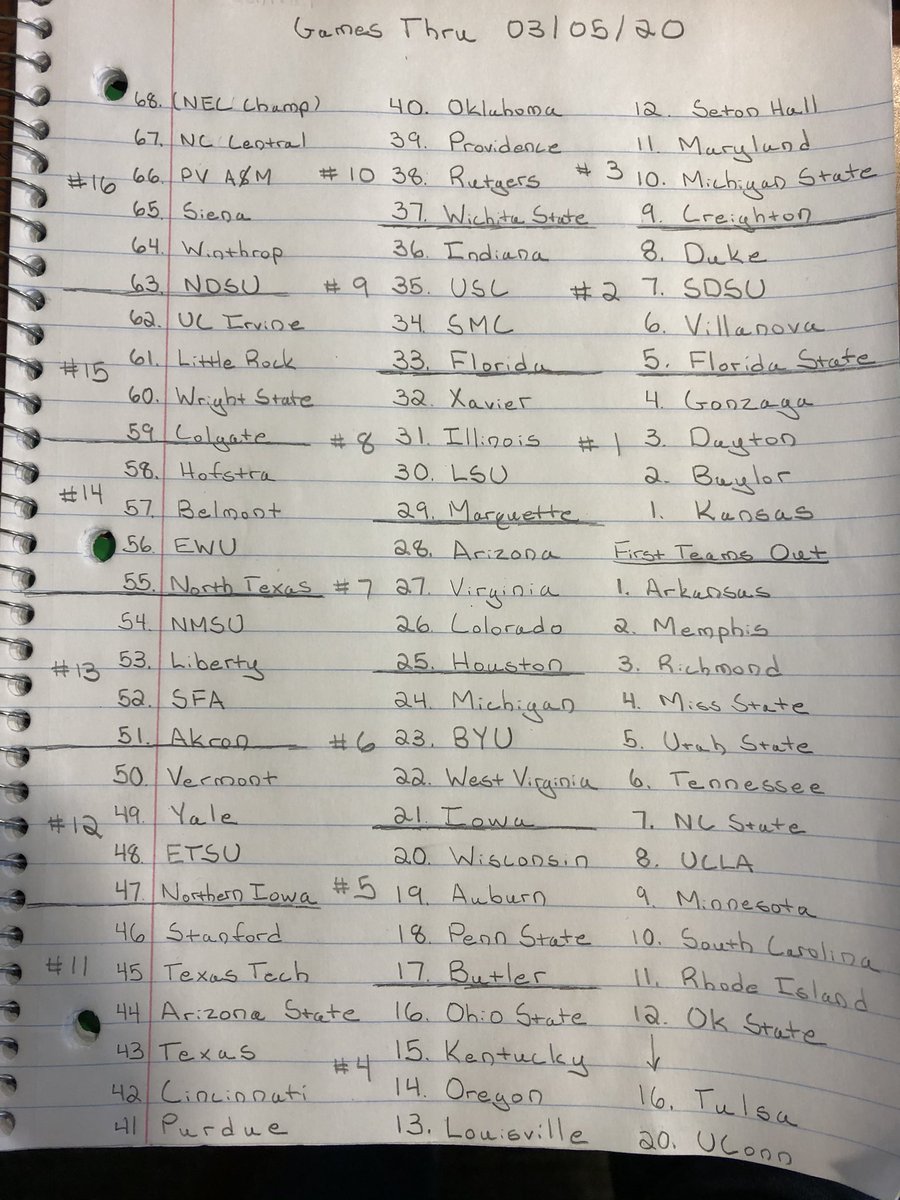 Games Thru 03/05/20
68. (NEC Champ)
67. NC Central
#16 66. PV A&M
65. Siena
64. Winthrop
63. NDSU
62. UC Irvine
#15 61. Little Rock
60. Wright State
59. Colgate
58. Hofstra
#14 57. Belmont
56. EWU
55. North Texas
54. NMSU
#13 53. Liberty
52. SFA
51. Akron
50. Vermont
#12 49. Yale
48. ETSU
47. Northern Iowa
46 Stanford
#11 45 Texas Tech
44 Arizona State
43 Texas
42 Cincinnati
41 Purdue
40. Oklahoma
39. Providence
#10 38. Rutgers
37. Wichita State
36. Indiana
#9 35. USC
34. SMC
33. Florida
32. Xavier
#8 31. Illinois
30. LSU
29. Marquette
28. Arizona
#7 27. Virginia
26. Colorado
25. Houston
24. Michigan
#6 23. BYU
22. West Virginia
21. Iowa
20. Wisconsin
#5 19. Auburn
18. Penn State
17. Butler
16. Ohio State
#4 15. Kentucky
14. Oregon
13. Louisville
12. Seton Hall
11. Maryland
#3 10. Michigan State
9. Creighton
8. Duke
#2 7. SDSU
6. Villanova
5. Florida State
4. Gonzaga
#1 3. Dayton
2. Baylor
1. Kansas
First Teams Out
1. Arkansas
2. Memphis
3. Richmond
4. Miss State
5. Utah State
6. Tennessee
7. NC State
8. UCLA
9. Minnesota
10. South Carolina
11. Rhode Island
12. OK State
↓
16. Tulsa
20. UConn